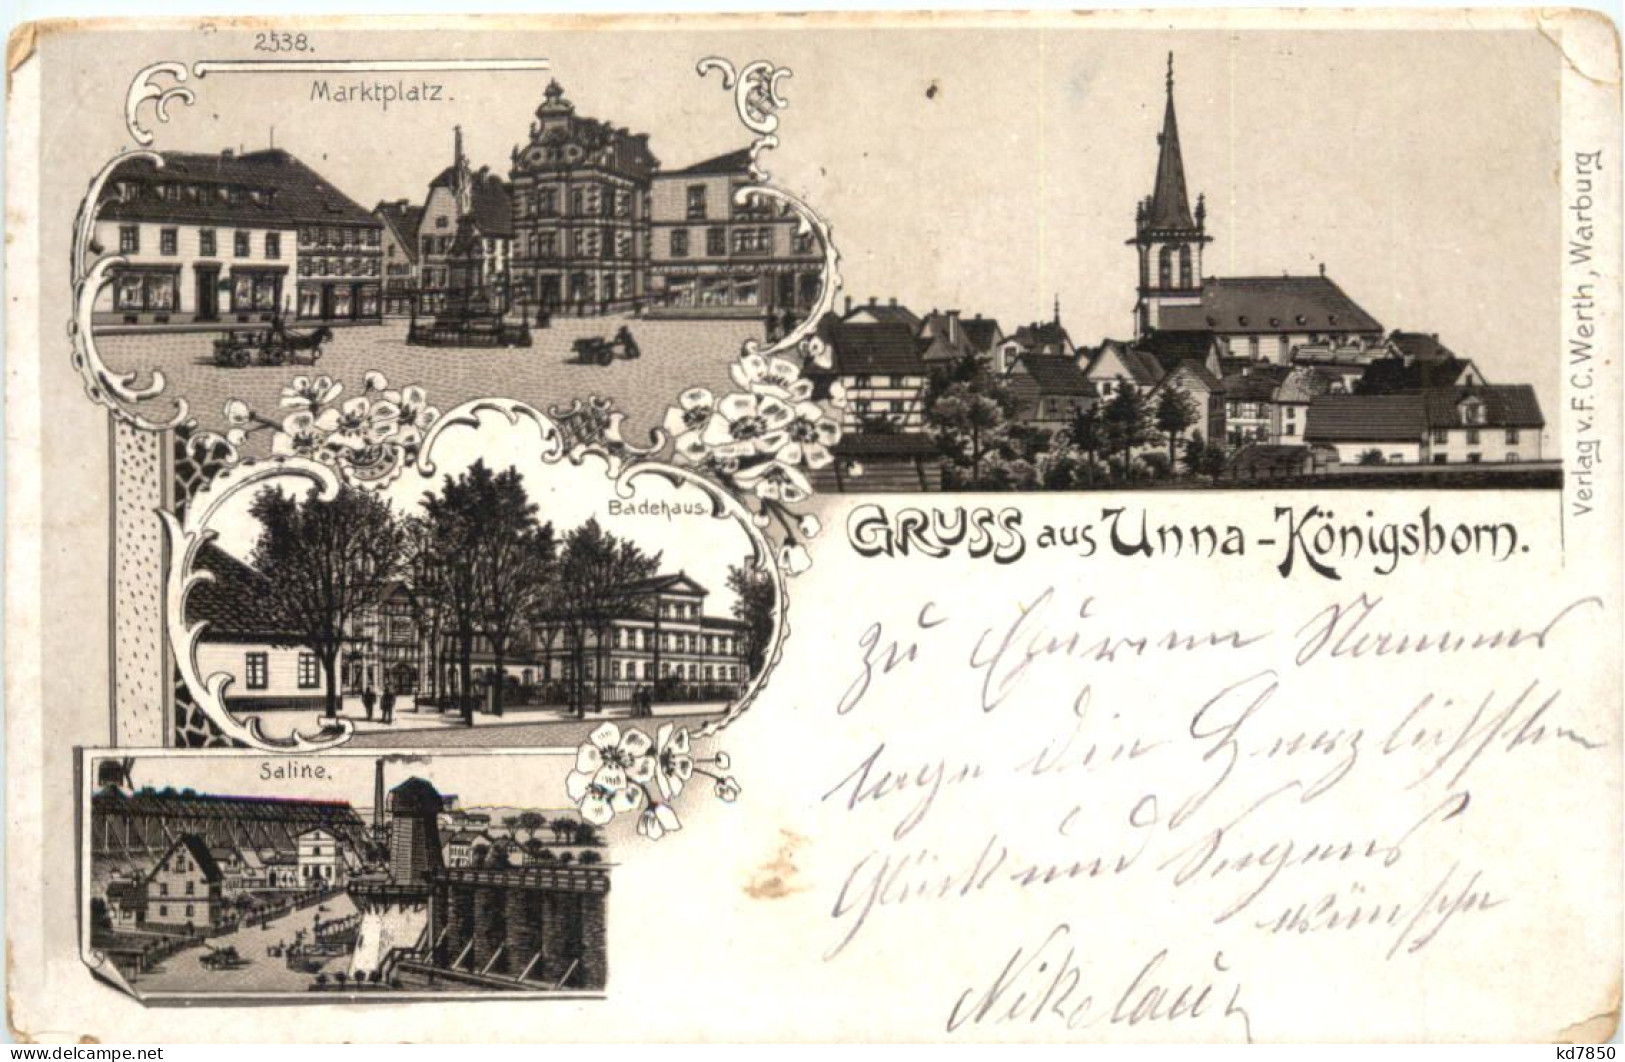 2538.
Marktplatz.
Badehaus.
Saline.
GRUSS aus Unna-Königsborn.
Verlag v. F. C. Werth, Warburg
zu Eurem Namens
tage die Herzlichsten
Glück und Segens
wünsche
Nikolaus
www.delcampe.net
kd7850